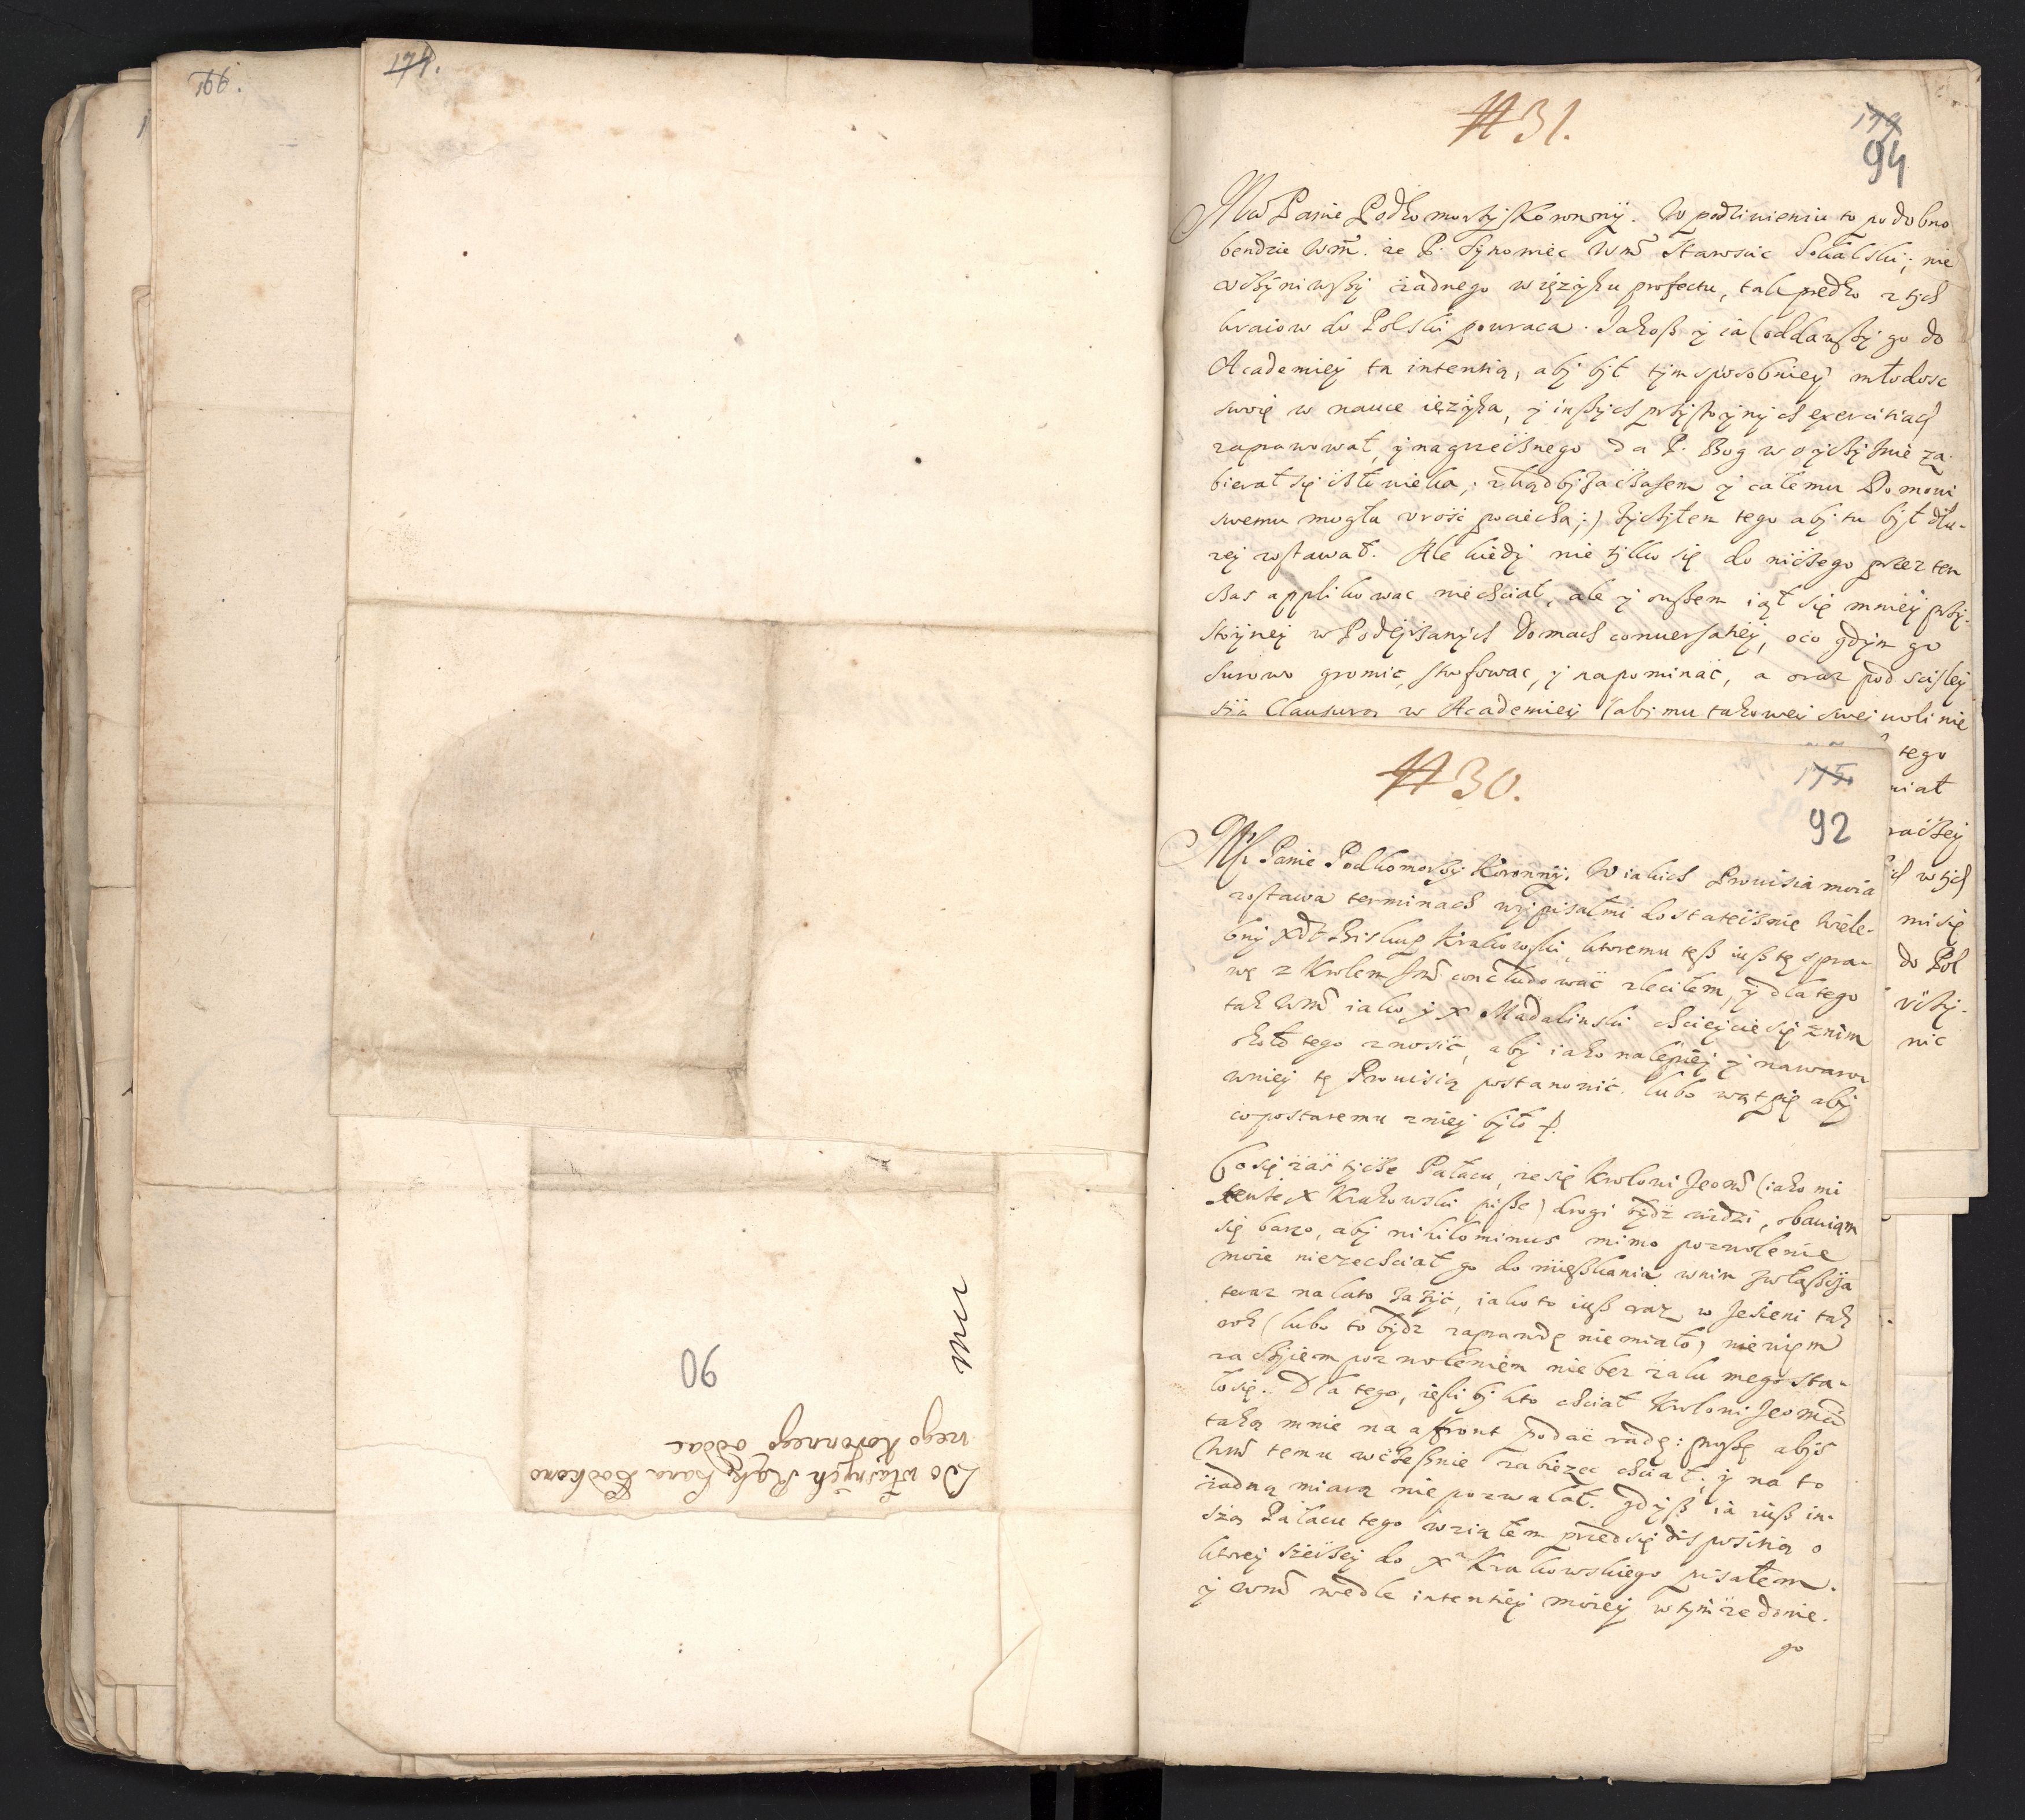 166.
174.
Do własnych Rąk Pana Podkomo
rzego koronnego oddac
90
# 31.
179
94
Mœ Panie Podkomorzy Koronny. W podziwieniu to podobno
bendzie Wmͨ. ze P. Synowiec Wmͨ Starosta Sokalski; nie
uczyniwszy zadnego w ięzyku profectu, tak prędko z tych
kraiow do Polski powraca. Jakoß y ia (oddawszy go do
Academiey ta intentią, aby był tym sposobniey młodosc
swoię w nauce ięzyka, y inßych przystoynych exercitiach
zaprawował, y na grzecznego da P. Bog w oyczyznie za-
bierał się człowieka; zkąd by za czasem y całemu Domowi
swemu mogła urość pociecha;) życzyłem tego aby tu był dłu-
zey zostawał. Ale kiedy nie tylko się do niczego przez ten
czas applikowac niechciał, ale y owßem iął się mniey przy-
stoyney w Podeyrzanych Domach conuersatiey, o co gdym go
surowo gromić, strofowac, y napominać, a oraz pod scisley
szą Clausurą w Academiey (aby mu takowey swey woli nie
tego
miał
raczey
ich w tych
mi się
do Pol
nic
# 30.
175.
92
Mœ Panie Podkomorzy Koronny. W iakich Prouisia moia
zostawa terminach wypisał mi dostatecznie Wiele-
bny Xdz Biskup Krakowski, ktoremu teß iuß tę spra-
wę z Krolem Jmͨ concludować zleciłem, y dla tego
tak Wmͨ iako y X Madalinski chcieycie się z nim
około tego znosić, aby iako nalepiey y nawaro
wniey tę Prouisią postanowić. lubo wątpię aby
co postaremu z niey było
Co się zaś tycze Pałacu, ze się Krolowi Jeomͨ (iako mi
tenże X Krakowski piße) drogi bydź widzi, obawiam
się barzo, aby nihilominus mimo pozwolenie
moie niezechciał go do mięßkania w nim zwłaßcza
teraz na lato zażyć, iako to iuß raz w Jesieni tak
rok (lubo to bydz zaprawdę niemiało) niewiem
za czyiem pozwoleniem nie bez zalu mego sta-
ło się. Dla tego, iesli by kto chciał Krolowi Jeomͨi
taką mnie na affront podać radę: proßę abyś
Wmͨ temu wczeßnie zabiezec chciał; y na to
żadną miarą nie pozwalał. gdyß ia iuß in-
szą Pałacu tego wziąłem przed się dispositią o
ktorey szerzey do Xa Krakowskiego pisałem.
y Wmͨ wedle intentiey moiey w tym ze do nie-
go